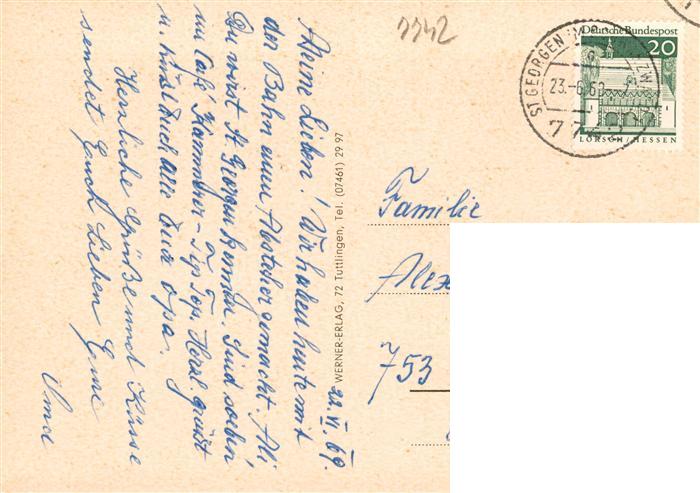 1142
ST GEORGEN
23.-6.69
Deutsche Bundespost
20
LORSCH/HESSEN
22. VI. 69.
Meine Lieben! Wir haben heute mit
der Bahn einen Abstecher gemacht. Ali,
Du wirst St Georgen kennen. Sind soeben
im Café Kammerer - Tip Top. Herzl. grüßt
u. küßt Euch alle Euer Opa.
Herzliche Grüße und Küsse
sendet Euch Lieben Eure
Oma
WERNER-ERLAG, 72 Tuttlingen, Tel. (07461) 29 97
Familie
Alex
753